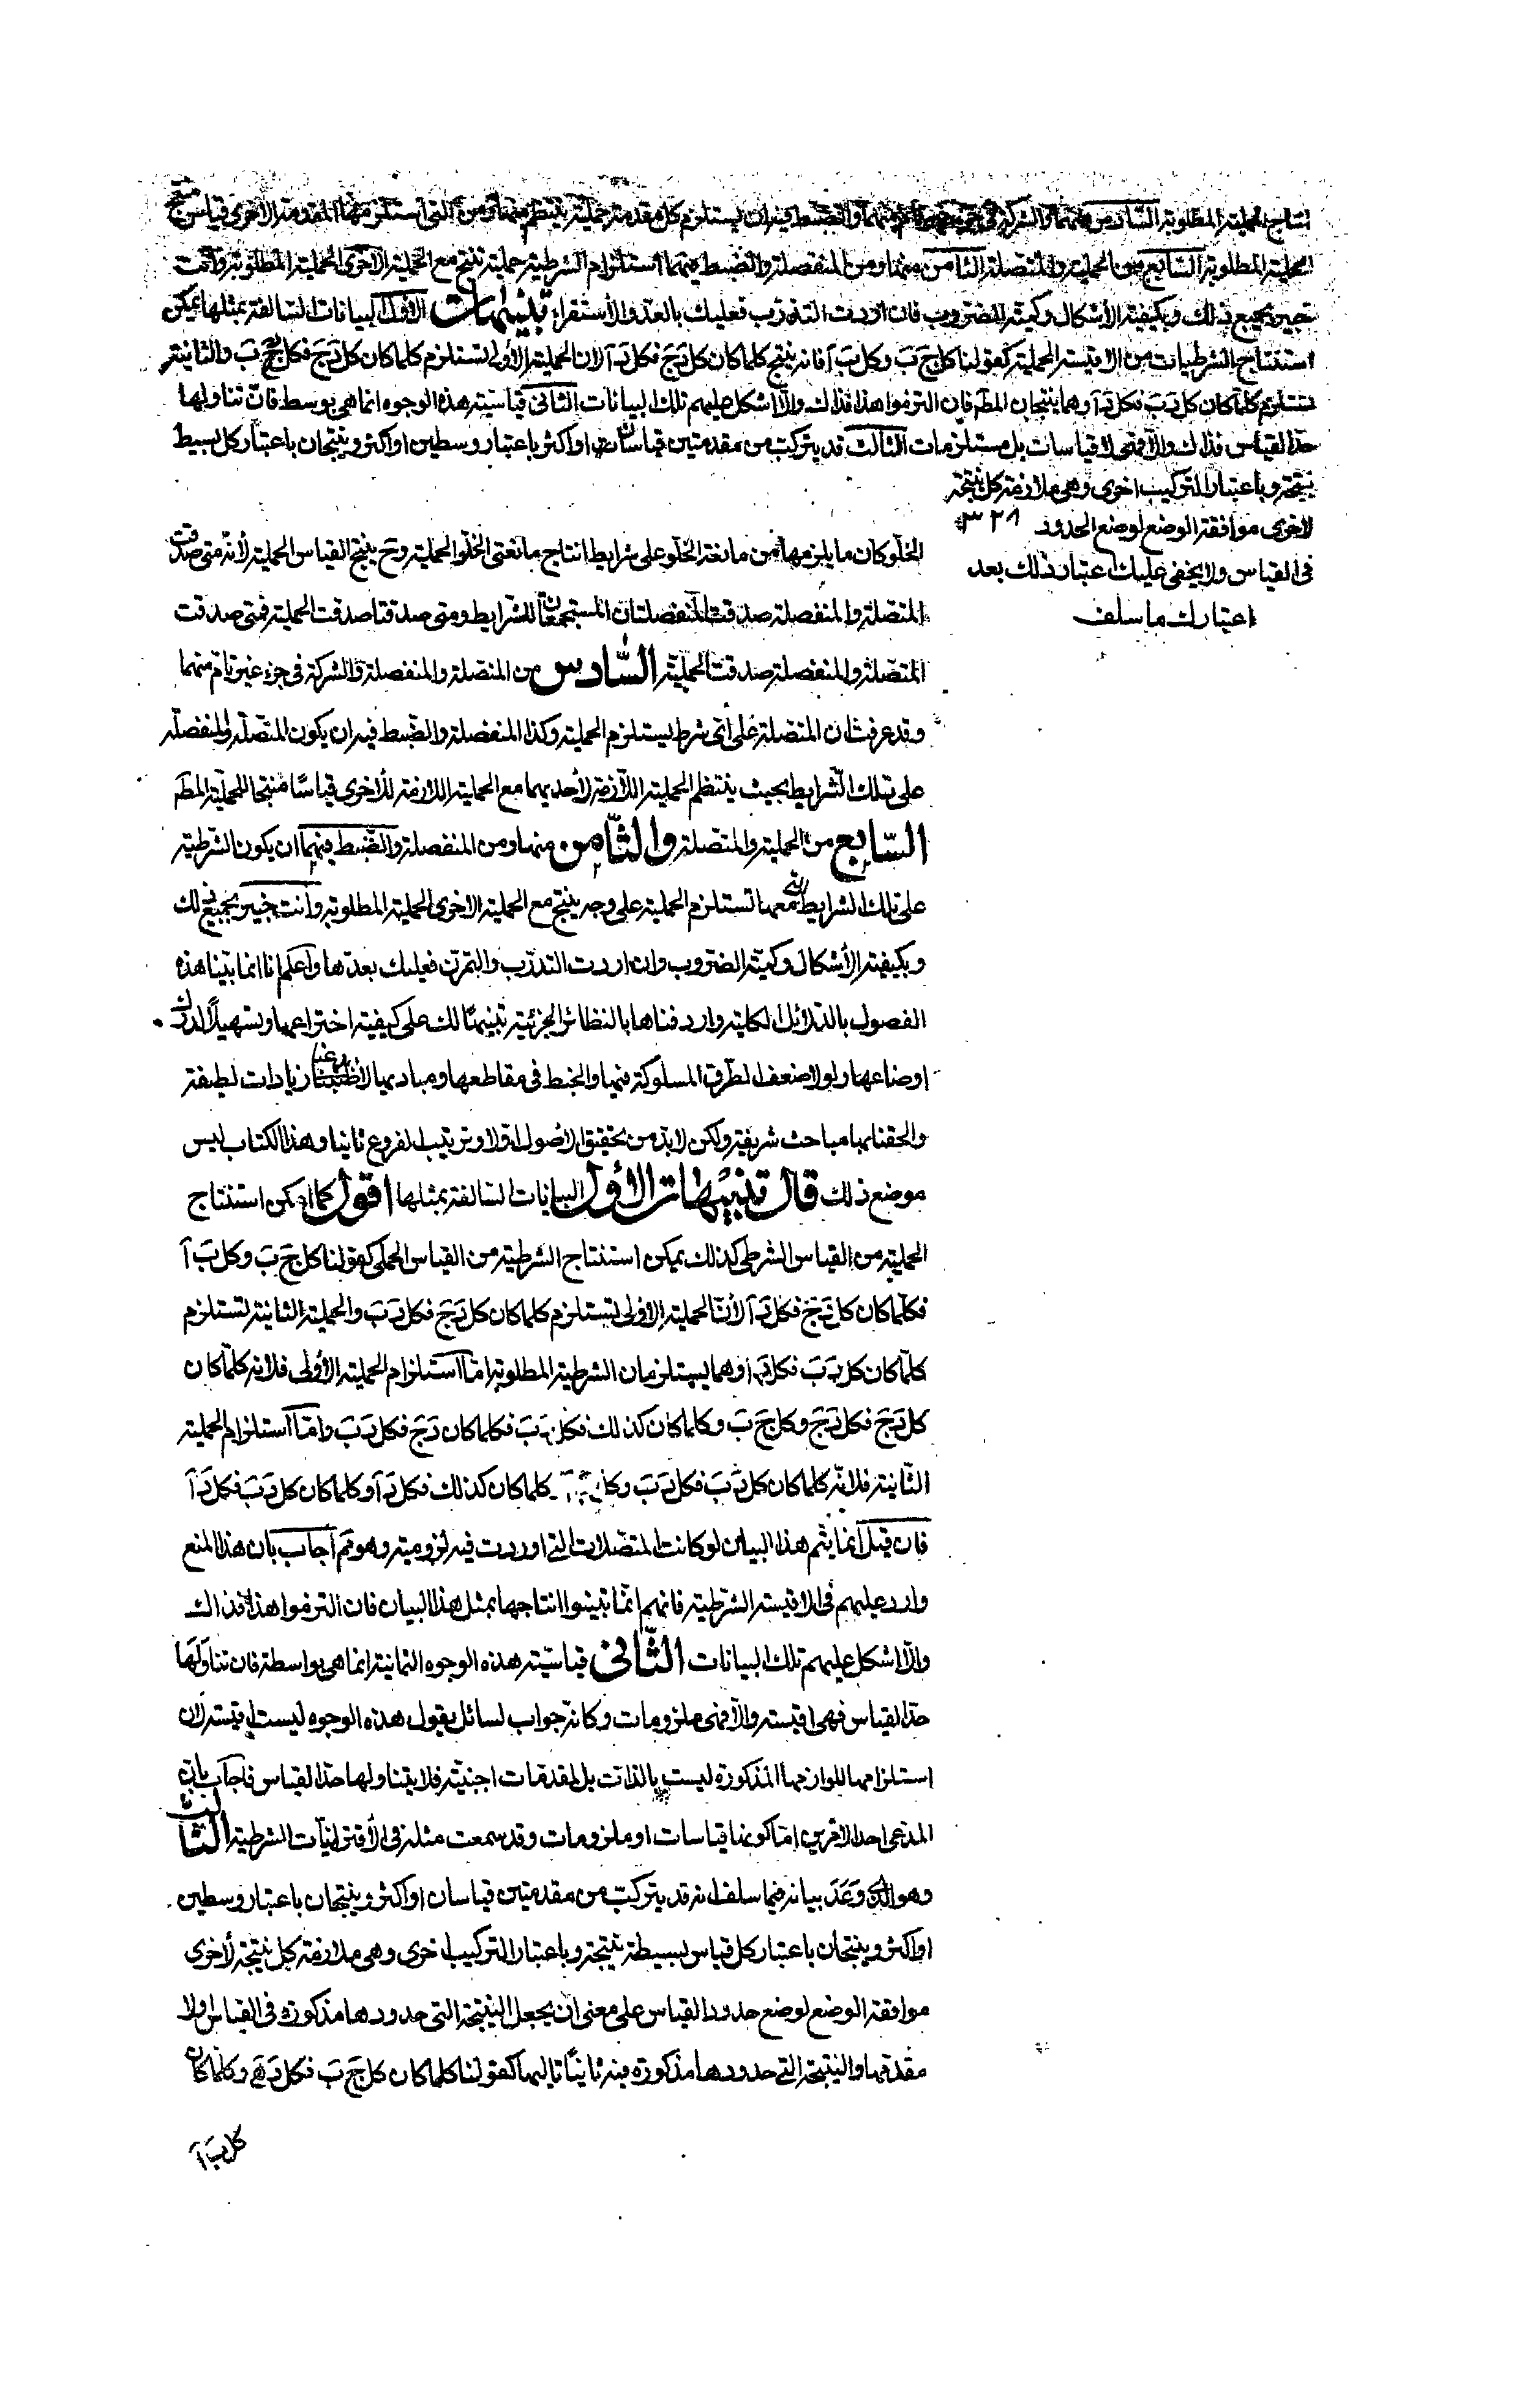 انتاج الحملية المطلوبة السادس منهما والشركة في جزء غير تام منهما والضبط فيه ان يستلزم كل مقدمة حملية ينتظم منها ومن التي استلزمها المقدمة الاخرى قياس منتج
الحملية المطلوبة السابع من الحملية والمتصلة الثامن منها ومن المنفصلة والضبط فيهما استلزام الشرطية حملية تنتج مع الحملية الاخرى الحملية المطلوبة وانت
خبير بجميع ذلك وبكيفية الأشكال وكمية الضروب فان اردت التدرب فعليك بالعد والأستقراء تنبيهات الاول البيانات السالفة بمثلها يمكن
استنتاج الشرطيات من الاقيسة الحملية كقولنا كل ج ب وكل ب آ فانه ينتج كلما كان كل د ج فكل د آ لان الحملية الاولى تستلزم كلما كان كل د ج فكل د ب والثانية
تستلزم كلما كان كل د ب فكل د آ وهما ينتجان المط فان التزموا هذا فذاك والا اشكل عليهم تلك البيانات الثانى قياسية هذه الوجوه انما هى بوسط فان تناولها
حد القياس فذاك والا فهى لا قياسات بل مستلزمات الثالث قد يتركب من مقدمتين قياسان او اكثر باعتبار وسطين او اكثر وينتجان باعتبار كل بسيط
نتيجة وباعتبار التركيب اخرى وهى ملازمة كل نتيجة
لاخرى موافقة الوضع لوضع الحدود
فى القياس ولا يخفى عليك اعتبار ذلك بعد
اعتبارك ما سلف
الخلو كان ما يلزمها من مانعة الخلو على شرايط انتاج مانعتى الخلو الحملية وح ينتج القياس الحملية لأنه متى صدقت
المتصلة والمنفصلة صدقت المنفصلتان المستجمعتان للشرايط ومتى صدقتا صدقت الحملية فمتى صدقت
المتصلة والمنفصلة صدقت الحملية السادس من المتصلة والمنفصلة والشركة فى جزء غير تام منهما
وقد عرفت ان المتصلة على اى شرط يستلزم الحملية وكذا المنفصلة والضبط فيه ان يكون المتصلة والمنفصلة
على تلك الشرايط بحيث ينتظم الحملية اللازمة لأحديهما مع الحملية اللازمة للأخرى قياسًا منتجا للحملية المط
السابع من الحملية والمتصلة والثامن منها ومن المنفصلة والضبط فيهما ان يكون الشرطية
على تلك الشرايط التى معها تستلزم الحملية على وجه ينتج مع الحملية الاخرى الحملية المطلوبة وانت خبير بجميع ذلك
وبكيفية الأشكال وكمية الضروب وان اردت التدرب والتمرن فعليك بعدها واعلم انا انما بينا هذه
الفصول بالدلائل الكلية واردفناها بالنظائر الجزئية تنبيهًا لك على كيفية اختراعها وتسهيلًا لدرك
اوضاعها ولولا ضعف الطرق المسلوكة فيها والخبط فى مقاطعها ومباديها زيادات لطيفة
والحقنا بها مباحث شريفة ولكن لابد من تحقيق الاصول اولا وترتيب الفروع ثانيا وهذا الكتاب ليس
موضع ذلك قال تنبيهات الاول البيانات السالفة بمثلها اقول كما امكن استنتاج
الحملية من القياس الشرطى كذلك يمكن استنتاج الشرطية من القياس الحملى كقولنا كل ج ب وكل ب آ
فكلما كان كل د ج فكل د آ لأن الحملية الاولى تستلزم كلما كان كل د ج فكل د ب والحملية الثانية تستلزم
كلما كان كل د ب فكل د آ وهما يستلزمان الشرطية المطلوبة اما استلزام الحملية الأولى فلانه كلما كان
كل د ج فكل د ج وكل ج ب وكلما كان كذلك فكل د ب فكلما كان د ج فكل د ب واما استلزام الحملية
الثانية فلانه كلما كان كل د ب فكل د ب وكل ب آ كلما كان كذلك فكل د آ وكلما كان كل د ب فكل د آ
فان قيل انما يتم هذا البيان لو كانت المتصلات التى اوردت فيه لزومية وهو مم اجاب بان هذا المنع
وارد عليهم فى الاقيسة الشرطية فانهم انما تبينوا انتاجها بمثل هذا البيان فان التزموا هذا فذاك
والا اشكل عليهم تلك البيانات الثانى قياسية هذه الوجوه الثمانية انما هى بواسطة فان تناولها
حد القياس فهى اقيسة والا فهى ملزومات وكانه جواب لسائل يقول هذه الوجوه ليست اقيسة لان
استلزامها للوازمها المذكورة ليست بالذات بل لمقدمات اجنبية فلا يتناولها حد القياس فاجاب بان
المدعى احد الامرين اما كونها قياسات او ملزومات وقد سمعت مثله فى الأقترانيات الشرطية الثالث
وهو الذى وعد بيانه فيما سلف انه قد يتركب من مقدمتين قياسان او اكثر وينتجان باعتبار وسطين
او اكثر وينتجان باعتبار كل قياس بسيطة نتيجة وباعتبار التركيب اخرى وهى ملازمة كل نتيجة لأخرى
موافقة الوضع لوضع حدود القياس على معنى ان يجعل النتيجة التى حدودها مذكورة فى القياس اولا
مقدمها والنتيجة التى حدودها مذكورة فيه ثانيًا تاليها كقولنا كلما كان كل ج ب فكل د ه وكلما كان
كل ب آ